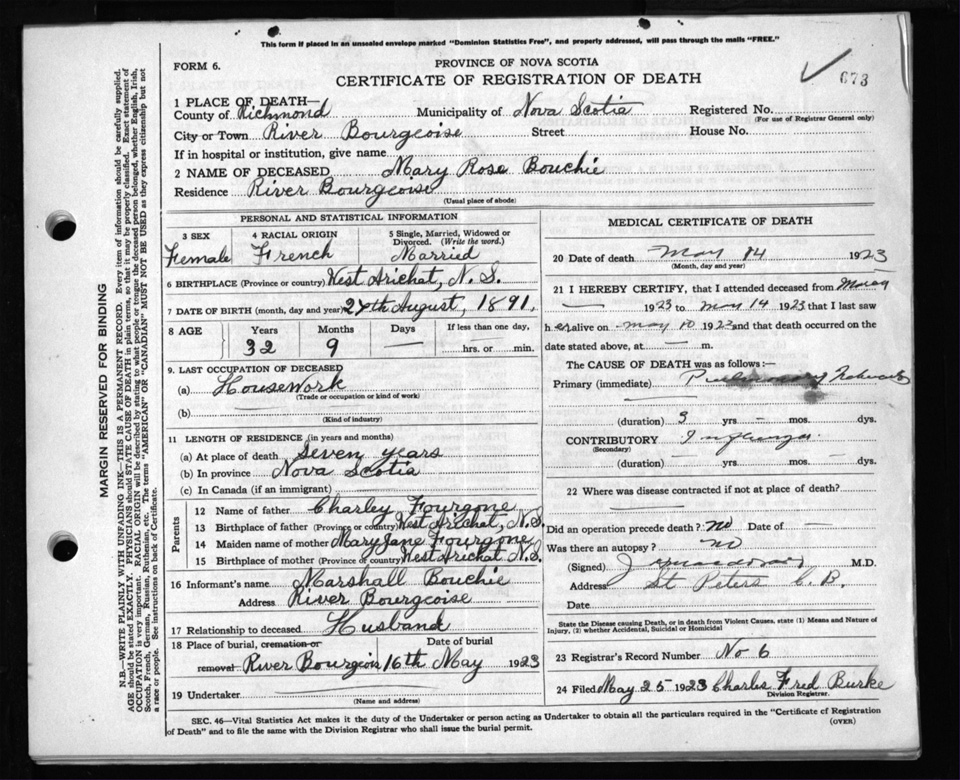 This form if placed in an unsealed envelope marked "Dominion Statistics Free", and properly addressed, will pass through the mails "FREE."
FORM 6.
PROVINCE OF NOVA SCOTIA
CERTIFICATE OF REGISTRATION OF DEATH
673
1 PLACE OF DEATH—
County of Richmond Municipality of Nova Scotia Registered No.
(For use of Registrar General only)
City or Town River Bourgeoise Street House No.
If in hospital or institution, give name
2 NAME OF DECEASED Mary Rose Bouchie
Residence River Bourgeoise
(Usual place of abode)
PERSONAL AND STATISTICAL INFORMATION
3 SEX 4 RACIAL ORIGIN 5 Single, Married, Widowed or Divorced. (Write the word.)
Female French Married
6 BIRTHPLACE (Province or country) West Arichat, N.S.
7 DATE OF BIRTH (month, day and year) 27th August, 1891,
8 AGE Years Months Days If less than one day,
32 9 — hrs. or min.
9. LAST OCCUPATION OF DECEASED
(a) Housework
(Trade or occupation or kind of work)
(b)
(Kind of industry)
11 LENGTH OF RESIDENCE (in years and months)
(a) At place of death Seven years
(b) In province Nova Scotia
(c) In Canada (if an immigrant)
Parents
12 Name of father Charley Fourgone
13 Birthplace of father (Province or country) West Arichat, N.S.
14 Maiden name of mother Mary Jane Fourgone
15 Birthplace of mother (Province or country) West Arichat N.S.
16 Informant's name Marshall Bouchie
Address River Bourgeoise
17 Relationship to deceased Husband
18 Place of burial, cremation or Date of burial
removal River Bourgeois 16th May 1923
19 Undertaker
(Name and address)
MEDICAL CERTIFICATE OF DEATH
20 Date of death May 14 1923
(Month, day and year)
21 I HEREBY CERTIFY, that I attended deceased from March
— 1923 to May 14 1923 that I last saw
her alive on May 10 1923 and that death occurred on the
date stated above, at — m.
The CAUSE OF DEATH was as follows:—
Primary (immediate) Pulmonary
(duration) 3 yrs — mos. dys.
CONTRIBUTORY Influenza
(Secondary)
(duration) — yrs. — mos. dys.
22 Where was disease contracted if not at place of death?
Did an operation precede death? no Date of —
Was there an autopsy? no
(Signed) M.D.
Address St Peters C.B.
Date
State the Disease causing Death, or in death from Violent Causes, state (1) Means and Nature of
Injury, (2) whether Accidental, Suicidal or Homicidal
23 Registrar's Record Number No 6
24 Filed May 25 1923 Charles Fred Burke
Division Registrar.
SEC. 46—Vital Statistics Act makes it the duty of the Undertaker or person acting as Undertaker to obtain all the particulars required in the "Certificate of Registration
of Death" and to file the same with the Division Registrar who shall issue the burial permit.
(OVER)
MARGIN RESERVED FOR BINDING
N.B.—WRITE PLAINLY WITH UNFADING INK—THIS IS A PERMANENT RECORD. Every item of information should be carefully supplied.
AGE should be stated EXACTLY. PHYSICIANS should STATE CAUSE OF DEATH in plain terms, so that it may be properly classified. Exact statement of
OCCUPATION is very important. RACIAL ORIGIN will be described by stating to what people or tongue the deceased person belonged, whether English, Irish,
Scotch, French, German, Russian, Ruthenian, etc. The terms "AMERICAN" OR "CANADIAN" MUST NOT BE USED as they express citizenship but not
a race or people. See instructions on back of Certificate.